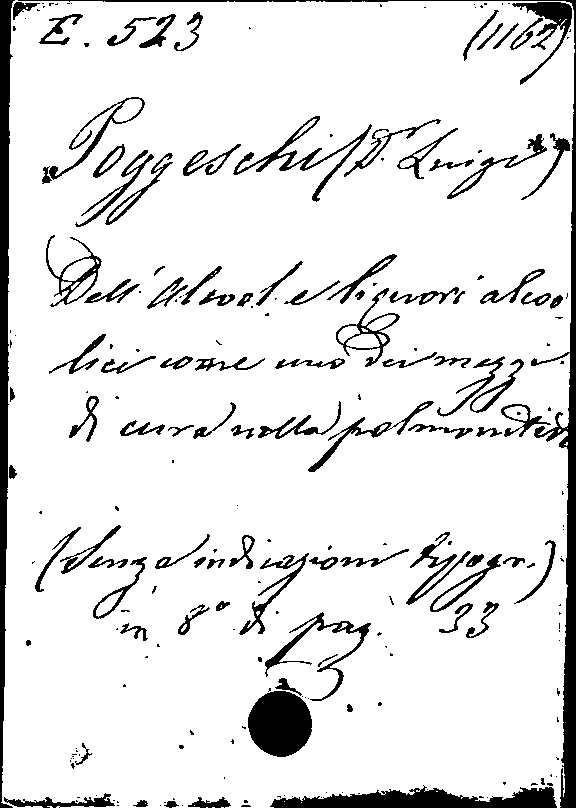 E. 523 (1162)
Poggeschi (Dr Luigi)
Dell' Alcool e liquori alcoo
lici come uno dei mezzi
di cura nella polmonite
(Senza indicazioni tipogr.)
in 8º di pag. 33